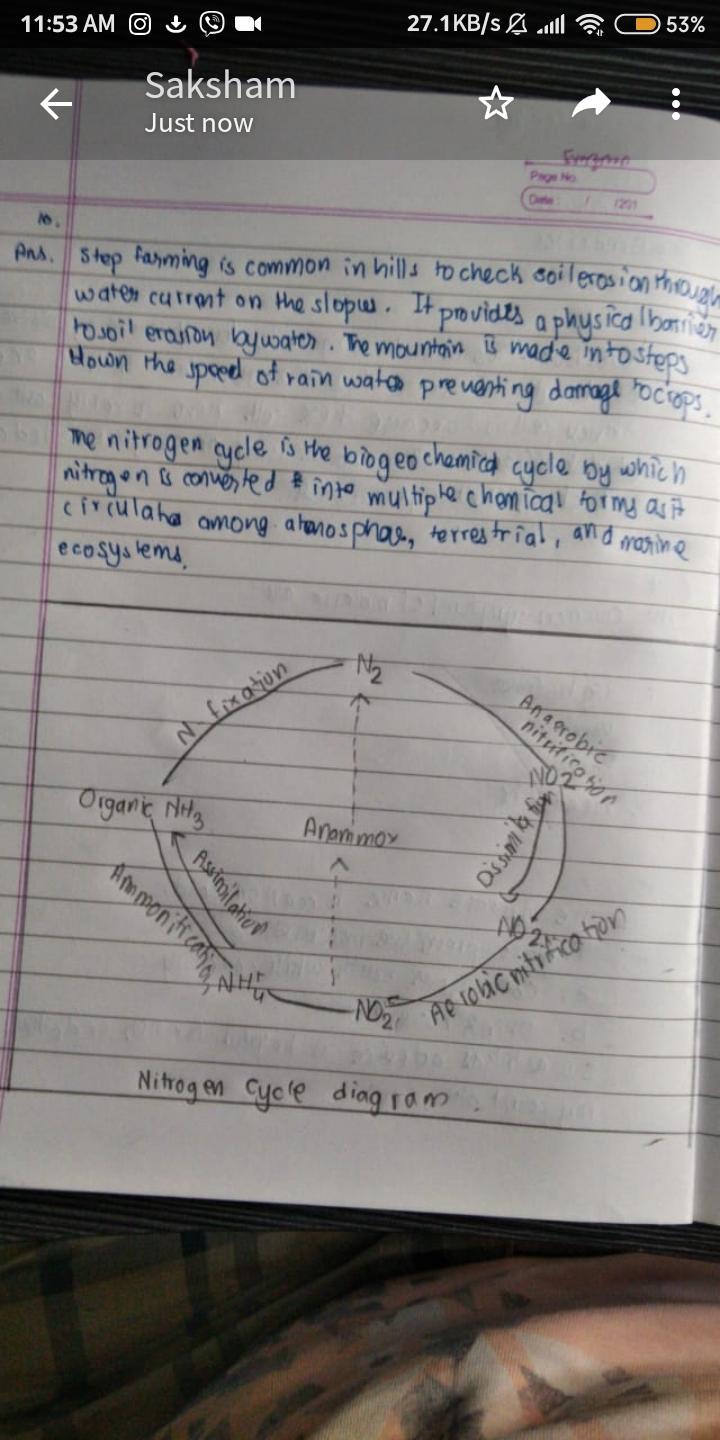 11:53 AM 27.1KB/s 53%
Saksham
Just now
Evergreen
Page No.
Date: / /201
10.
Ans. Step farming is common in hills to check soil erosion through
water current on the slopes. It provides a physical barrier
to soil erosion by water. The mountain is made into steps
slown the speed of rain water preventing damage to crops.
The nitrogen cycle is the biogeochemical cycle by which
nitrogen is converted into multiple chemical forms as it
circulate among atmosphere, terrestrial, and marine
ecosystems.
N2
N-fixation
Anaerobic
nitrification
NO2
Organic NH3
Anammox
Dissimilation
Assimilation
Ammonification
NO2
Aerobic nitrification
NH4+
NO2
Nitrogen Cycle diagram.